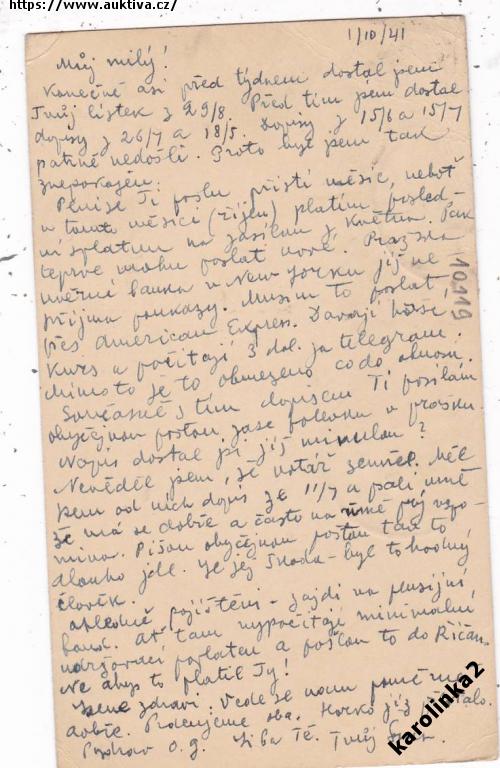 https://www.auktiva.cz/
1/10/41
Můj milý!
Konečně asi před týdnem dostal jsem
Tvůj lístek z 29/8. Před tím jsem dostal
dopisy z 26/7 a 18/5. Dopisy z 15/6 a 15/7
patrně nedošli. Proto byl jsem tak
znepokojen.
Peníze Ti pošlu příští měsíc, neboť
v tomto měsíci (říjen) platím posled-
ní splátku na zásilku z května. Pak
teprve mohu poslat nové. Pražská
úvěrní banka v New Yorku již ne
přijímá poukazy. Musím to poslat
přes American Express. Dávají horší
kurs a počítají 3 dol. za telegram.
Mimo to je to obmezeno co do obnosu.
Současně s tím dopisem Ti posílám
obyčejnou poštou zase polévku v prášku.
Napiš dostal jsi již minulou?
Nevěděl jsem, že notář zemřel. Měl
jsem od nich dopis ze 11/7 a psali
že má se dobře a často na mě vzpo-
míná. Píšou obyčejnou poštou tak to
dlouho jde. Je jej škoda - byl to hodný
člověk.
Ohledně pojištění - zajdi na
Ať tam vypočítají minimální
udržovací poplatek a pošlou to do Říčan.
Ne abys to platil Ty!
Jsme zdrávi. Vede se nám poměrně
dobře. Pracujeme oba. Horko již
Pozdrav O. G. Líbá Tě. Tvůj
10.919
karolinka2